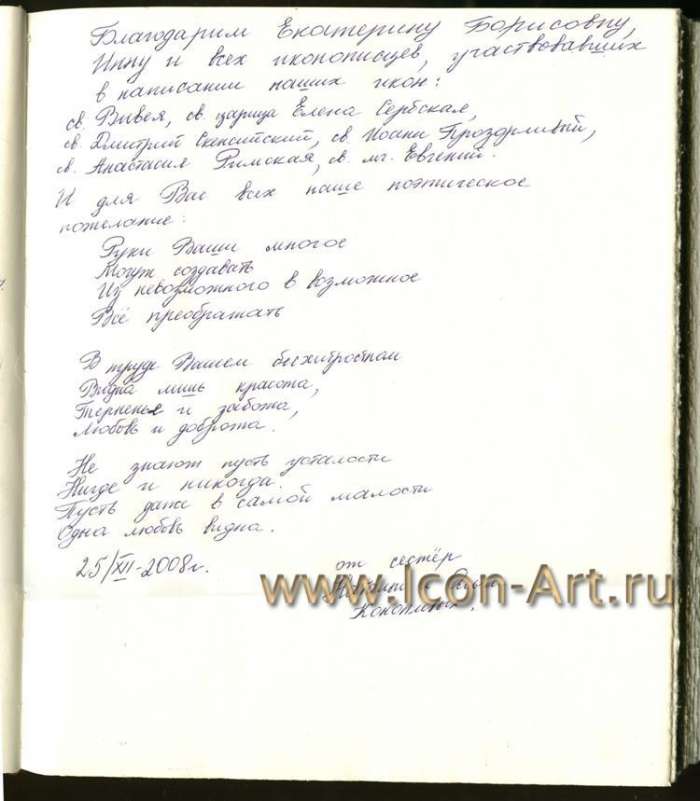 Благодарим Екатерину Борисовну,
Инну и всех иконописцев, участвовавших
в написании наших икон:
св. Вивея, св. царица Елена Сербская,
св. Дмитрий Скепсийский, св. Иоанн Прозорливый,
св. Анастасия Римская, св. мч. Евгений.
И для Вас всех наше поэтическое
пожелание:
Руки Ваши многое
Могут создавать
Из невозможного в возможное
Всё преображать
В труде Вашем бесхитростном
Видна лишь красота,
Терпенье и забота,
Любовь и доброта.
Не знают пусть усталости
Нигде и никогда.
Пусть даже в самой малости
Одна любовь видна.
25/XII-2008г.
от сестёр
www.Icon-Art.ru